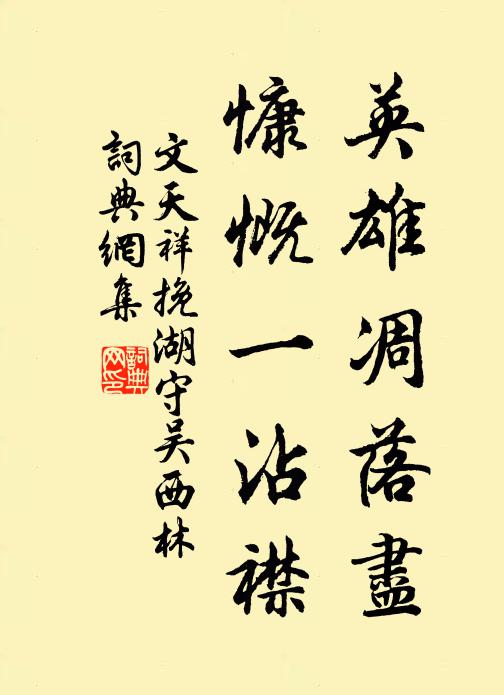 英雄凋落盡
慷慨一沾襟
文天祥挽湖守吴西林
詞典網集
詞典網印